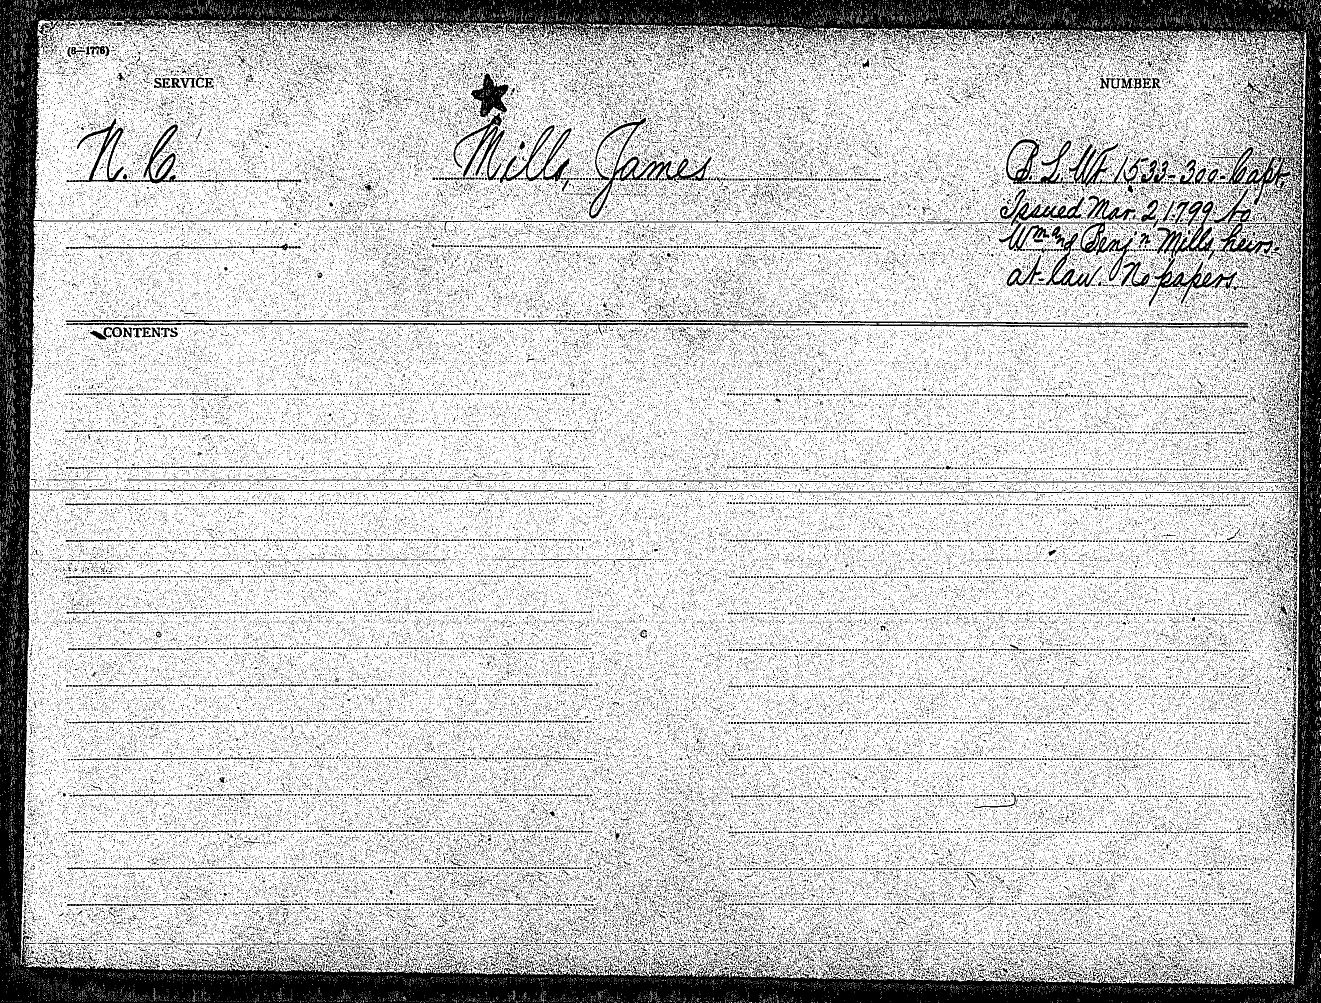 (6—1776)
SERVICE
NUMBER
N. C.
Mills, James
B. L. Wt 1533-300-Capt.
Issued Mar. 2 1799 to
Wm and Benjn Mills, heirs-
at-law. No papers.
CONTENTS